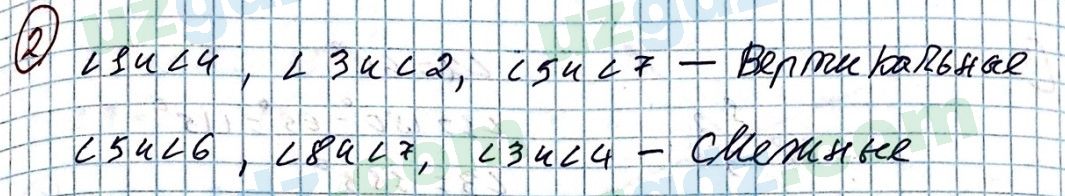 2 ∠1 и ∠4, ∠3 и ∠2, ∠5 и ∠7 — Вертикальные
∠5 и ∠6, ∠8 и ∠7, ∠3 и ∠4 — Смежные